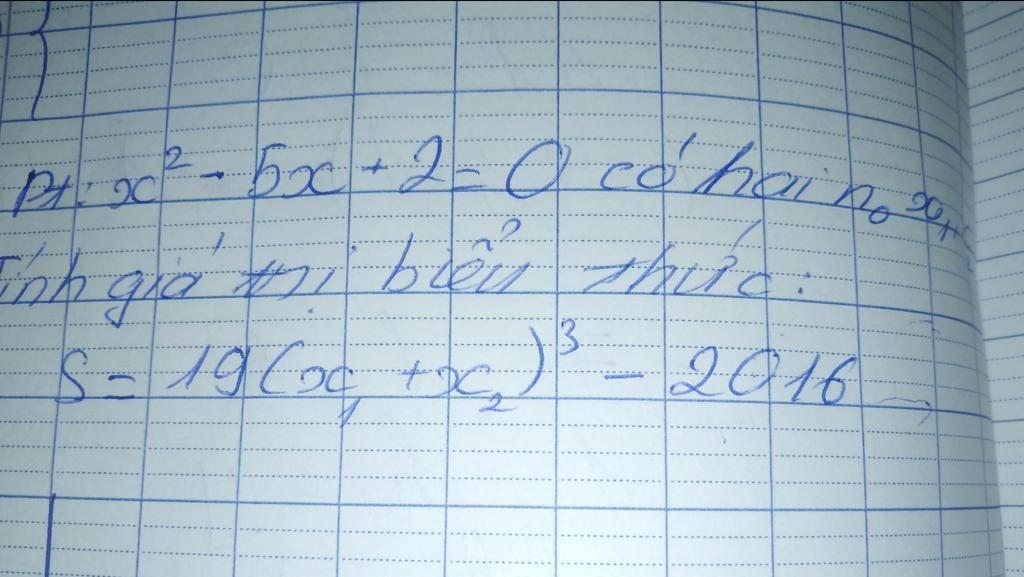 Pt: x² - 5x + 2 = 0 có hai n₀ x₁,
Tính giá trị biểu thức:
S = 19(x₁ + x₂)³ - 2016